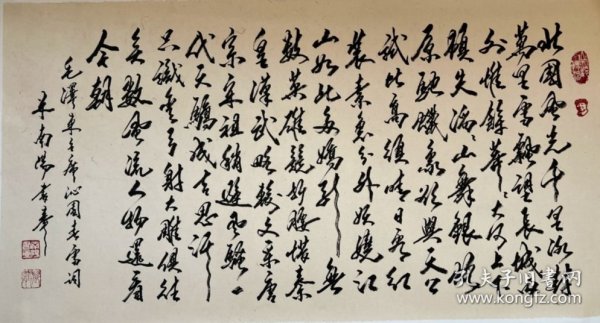 北国风光千里冰封
万里雪飘望长城内
外惟余莽莽大河上下
顿失滔滔山舞银蛇
原驰蜡象欲与天公
试比高须晴日看红
装素裹分外妖娆江
山如此多娇引无
数英雄竞折腰惜秦
皇汉武略输文采唐
宗宋祖稍逊风骚一
代天骄成吉思汗
只识弯弓射大雕俱往
矣数风流人物还看
今朝
毛泽东主席沁园春雪词
米南阳书奉
孔夫子旧书网
www.kongfz.com